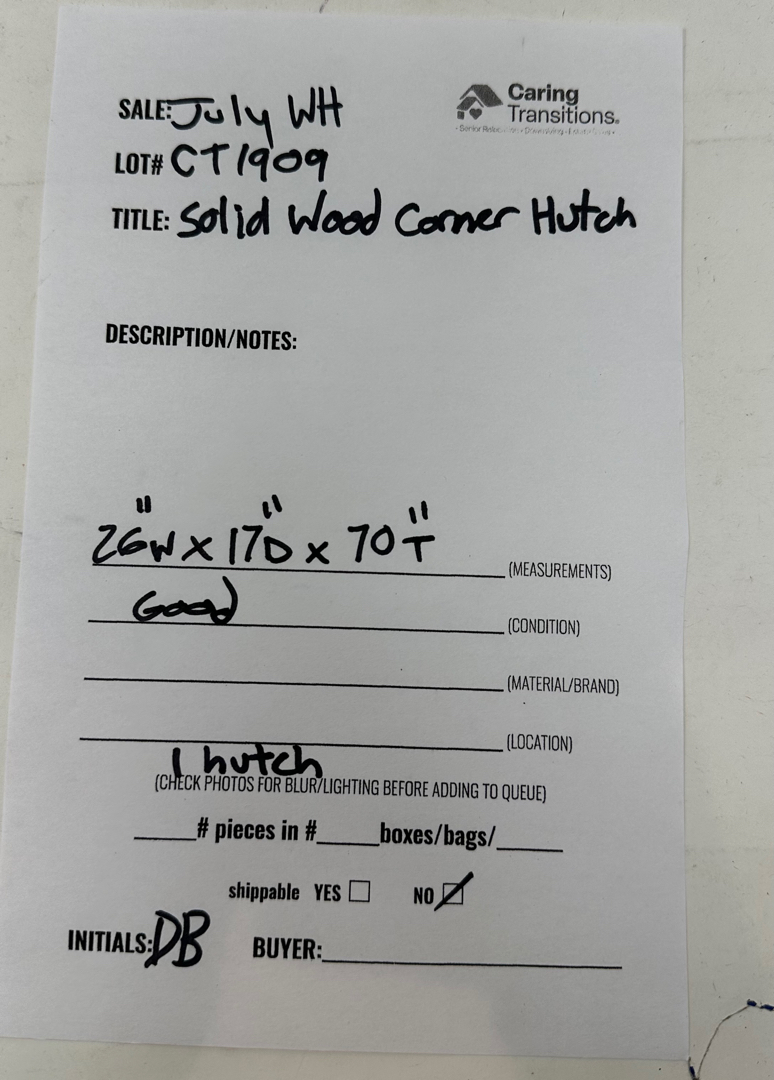 Caring
Transitions.
SALE: July WH
LOT# CT1909
TITLE: Solid Wood Corner Hutch
DESCRIPTION/NOTES:
26"W x 17"D x 70"T (MEASUREMENTS)
Good (CONDITION)
(MATERIAL/BRAND)
(LOCATION)
1 hutch
(CHECK PHOTOS FOR BLUR/LIGHTING BEFORE ADDING TO QUEUE)
____# pieces in #____boxes/bags/____
shippable YES ☐ NO ☑
INITIALS: DB BUYER:____